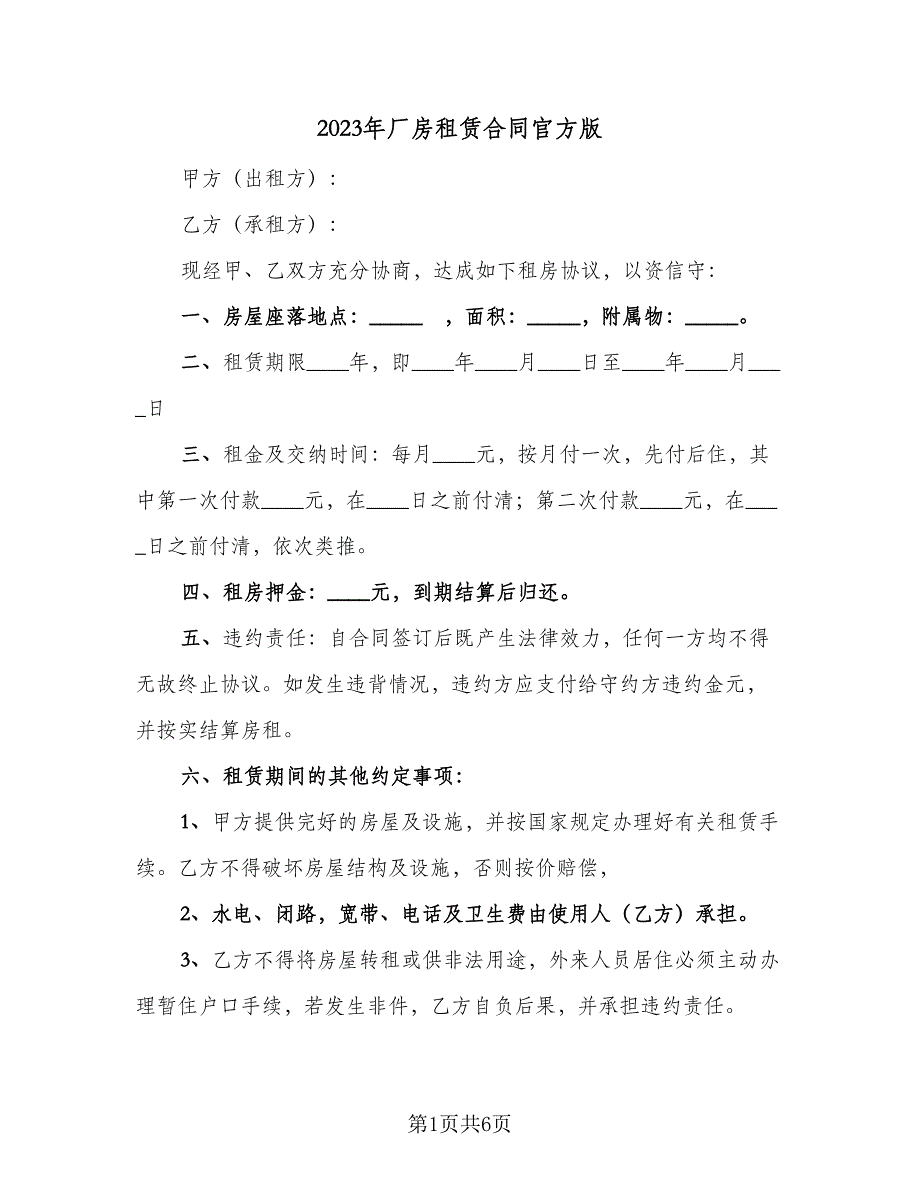 2023年厂房租赁合同官方版
甲方（出租方）：
乙方（承租方）：
现经甲、乙双方充分协商，达成如下租房协议，以资信守：
一、房屋座落地点：_____　，面积：_____，附属物：_____。
二、租赁期限____年，即____年____月____日至____年____月___
_日
三、租金及交纳时间：每月____元，按月付一次，先付后住，其
中第一次付款____元，在____日之前付清；第二次付款____元，在___
_日之前付清，依次类推。
四、租房押金：____元，到期结算后归还。
五、违约责任：自合同签订后既产生法律效力，任何一方均不得
无故终止协议。如发生违背情况，违约方应支付给守约方违约金元，
并按实结算房租。
六、租赁期间的其他约定事项：
1、甲方提供完好的房屋及设施，并按国家规定办理好有关租赁手
续。乙方不得破坏房屋结构及设施，否则按价赔偿，
2、水电、闭路，宽带、电话及卫生费由使用人（乙方）承担。
3、乙方不得将房屋转租或供非法用途，外来人员居住必须主动办
理暂住户口手续，若发生非件，乙方自负后果，并承担违约责任。
第1页共6页